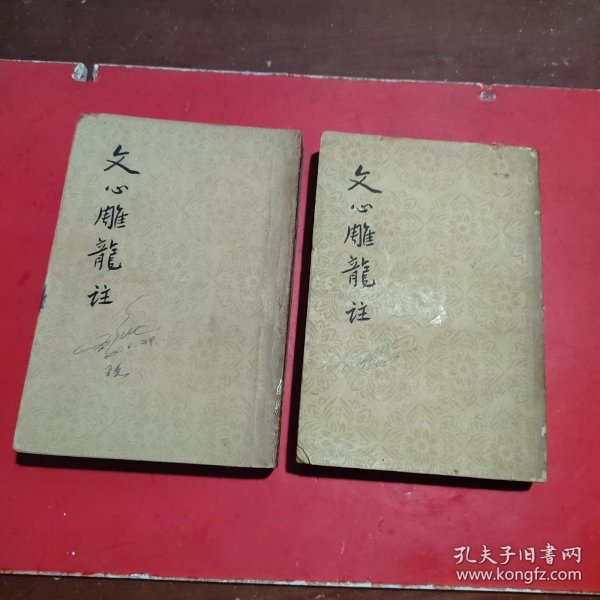 文心雕龍註
文心雕龍註
孔夫子旧书网
www.kongfz.com